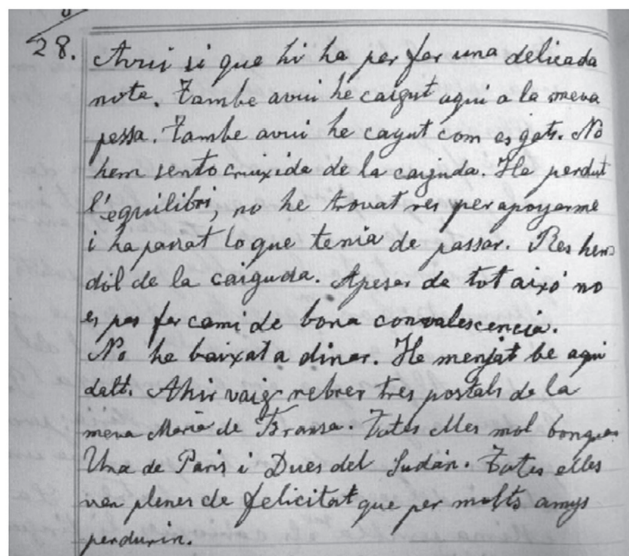 28. Avui si que hi ha per fer una delicada
nota. Tambe avui he caigut aqui a la meva
pessa. Tambe avui he cayut com es gats. No
hem sento cruixida de la caiguda. He perdut
l'equilibri, no he trovat res per apoyarme
i ha passat lo que tenia de passar. Res hem
dól de la caiguda. Apesar de tot aixó no
es pas fer cami de bona convalescencia.
No he baixat a dinar. He menjat be aqui
dalt. Ahir vaig rebrer tres postals de la
meva Maria de Fransa. Totes elles mol boniques
Una de Paris i Dues del Sudán. Totes elles
van plenes de felicitat que per molts anys
perdurin.